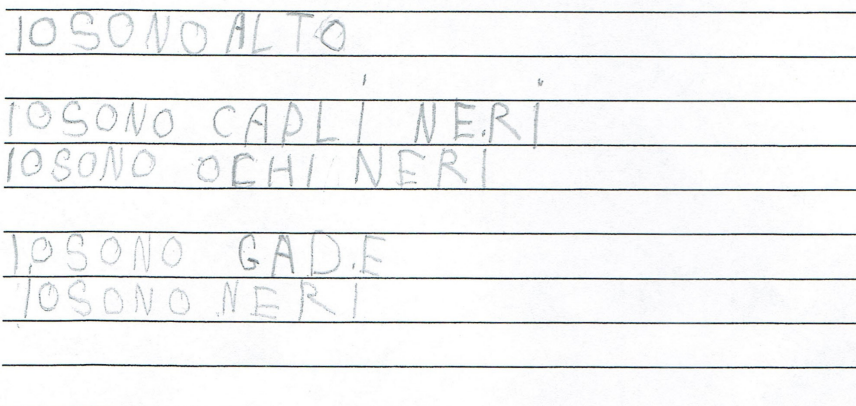 IO SONO ALTO
IO SONO CAPLI NERI
IO SONO OCHI NERI
IO SONO GADE
IO SONO NERI